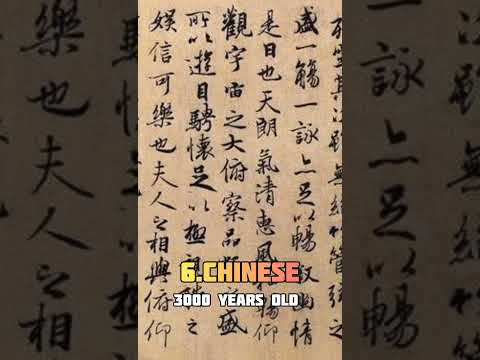 坐其次雖無絲竹管弦之
盛一觴一詠亦足以暢叙幽情
是日也天朗氣清惠風暢仰
觀宇宙之大俯察品盛
所以遊目騁懷足以極之
娛信可樂也夫人之相與俯仰
6.CHINESE
3000 YEARS OLD